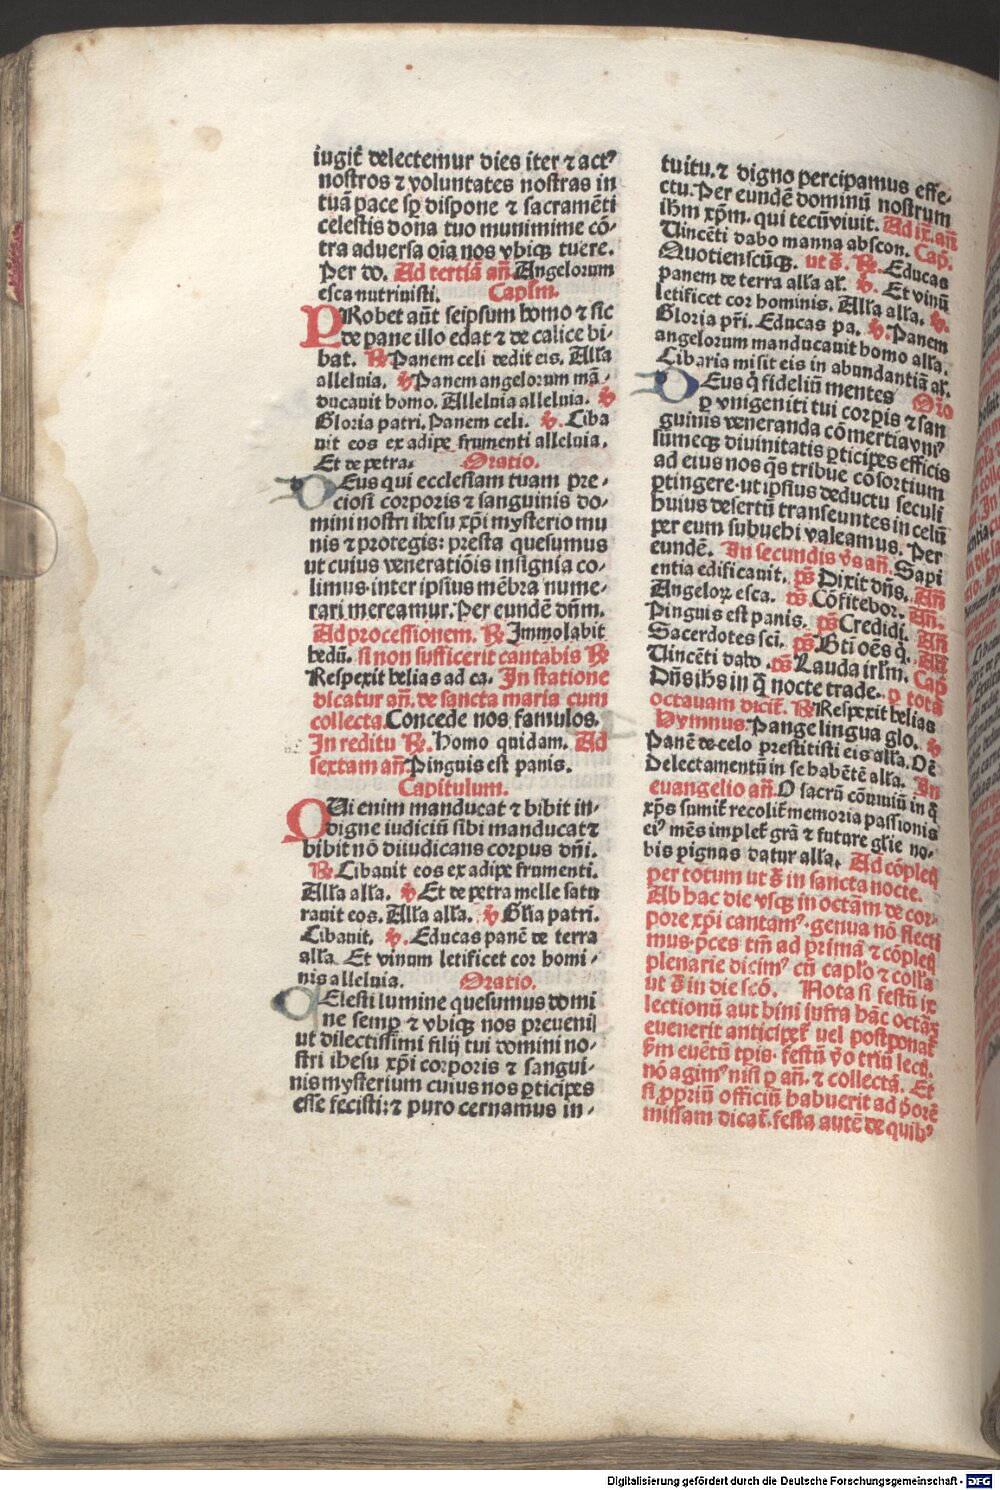 iugit̃ delectemur dies iter ⁊ actꝰ
nostros ⁊ voluntates nostras in
tuã pace sꝑ dispone ⁊ sacramẽti
celestis dona tuo munimime cõ-
tra aduersa oĩa nos vbiqꝫ tuere.
Per do. Ad tertiã añ. Angelorum
esca nutriuisti. Caplm.
PRobet aũt seipsum homo ⁊ sic
de pane illo edat ⁊ de calice bi-
bat. ℟ Panem celi dedit eis. Alla
alleluia. ℣ Panem angelorum mã-
ducauit homo. Alleluia alleluia. ℣
Gloria patri. Panem celi. ℣. Ciba
uit eos ex adipe frumenti alleluia.
Et de petra. Oratio.
DEus qui ecclesiam tuam pre-
ciosi corporis ⁊ sanguinis do-
mini nostri ihesu xp̃i mysterio mu
nis ⁊ protegis: presta quesumus
ut cuius venerationis insignia co-
limus. inter ipsius mẽbra nume-
rari mereamur. Per eundẽ dñm.
Ad processionem. ℟ Immolabit
hedũ. si non sufficerit cantabis ℟
Respexit helias ad ca. In statione
dicatur añ. de sancta maria cum
collecta. Concede nos famulos.
In reditu ℟. Homo quidam. Ad
sextam añ Pinguis est panis.
Capitulum.
QUi enim manducat ⁊ bibit in-
digne iudiciũ sibi manducat ⁊
bibit nõ diiudicans corpus dñi.
℟ Cibauit eos ex adipe frumenti.
Alla alla. ℣ Et de petra melle satu
rauit eos. Alla alla. ℣ Glia patri.
Cibauit. ℣. Educas panẽ de terra
alla. Et vinum letificet cor homi-
nis alleluia. Oratio.
CElesti lumine quesumus domi
ne semꝑ ⁊ vbiqꝫ nos preueni
ut dilectissimi filij tui domini no-
stri ihesu xp̃i corporis ⁊ sangui-
nis mysterium cuius nos ꝑticipes
esse fecisti: ⁊ puro cernamus in-
tuitu. ⁊ digno percipamus effe-
ctu. Per eundẽ dominũ nostrum
ihm xp̃m. qui tecũ viuit. Ad ix. añ
Uincẽti dabo manna abscon. Cap.
Quotienscũqꝫ. ut s̃. ℟. Educas
panem de terra alla al. ℣. Et vinũ
letificet cor hominis. Alla alla. ℣.
Gloria pr̃i. Educas pa. ℣. Panem
angelorum manducauit homo alla.
Cibaria misit eis in abundantiã al.
DEus q̃ fideliũ mentes Oro
ꝑ vnigeniti tui corꝑis ⁊ san
guinis veneranda cõmertia vniꝰ
sũmeqꝫ diuinitatis ꝑticipes efficis
ad eius nos q̃s tribue cõsortium
ꝑtingere. ut ipsius deductu seculi
huius desertũ transeuntes in celũ
per eum subuehi valeamus. Per
eundẽ. In secundis v̄s añ. Sapi
entia edificauit. p̃s Dixit dñs. Añ
Angeloꝝ esca. p̃s. Cõfitebor. Añ.
Pinguis est panis. p̃s Credidi. Añ
Sacerdotes sci. p̃s. Bti oẽs q̃. Añ
Uincẽti dabo. p̃s Lauda irlm. Cap
Dñs ihs in q̃ nocte trade. ꝑ totã
octauam dicit̃. ℟ Respexit helias
Hymnus. Pange lingua glo. ℣
Panẽ de celo prestitisti eis alla. Oẽ
Delectamentũ in se habẽtẽ alla. In
euangelio añ. O sacrũ cõuiuiũ in q̃
xp̃s sumit̃ recolit̃ memoria passionis
eiꝰ mẽs implet̃ grã ⁊ future glie no-
bis pignus datur alla. Ad cõpletꝫ
per totum ut s̃ in sancta nocte.
Ab hac die vsqꝫ in octãm de cor-
pore xp̃i cantamꝰ. genua nõ flecti
mus. p̃ces tm̃ ad primã ⁊ cõpletꝫ
plenarie dicimꝰ cũ caplo ⁊ colla
ut s̃ in die scõ. Nota si festũ ix
lectionũ aut bini iufra hãc octãꝫ
euenerit anticipet̃ uel postponat̃
s̃m euẽtũ tp̃is. festũ v̾o triũ lectꝫ.
nõ agimꝰ nisi ꝑ añ. ⁊ collectã. Et
si ꝓpriũ officiũ habuerit ad p̃orẽ
missam dicat̃. festa autẽ de quibꝰ
Digitalisierung gefördert durch die Deutsche Forschungsgemeinschaft - DFG